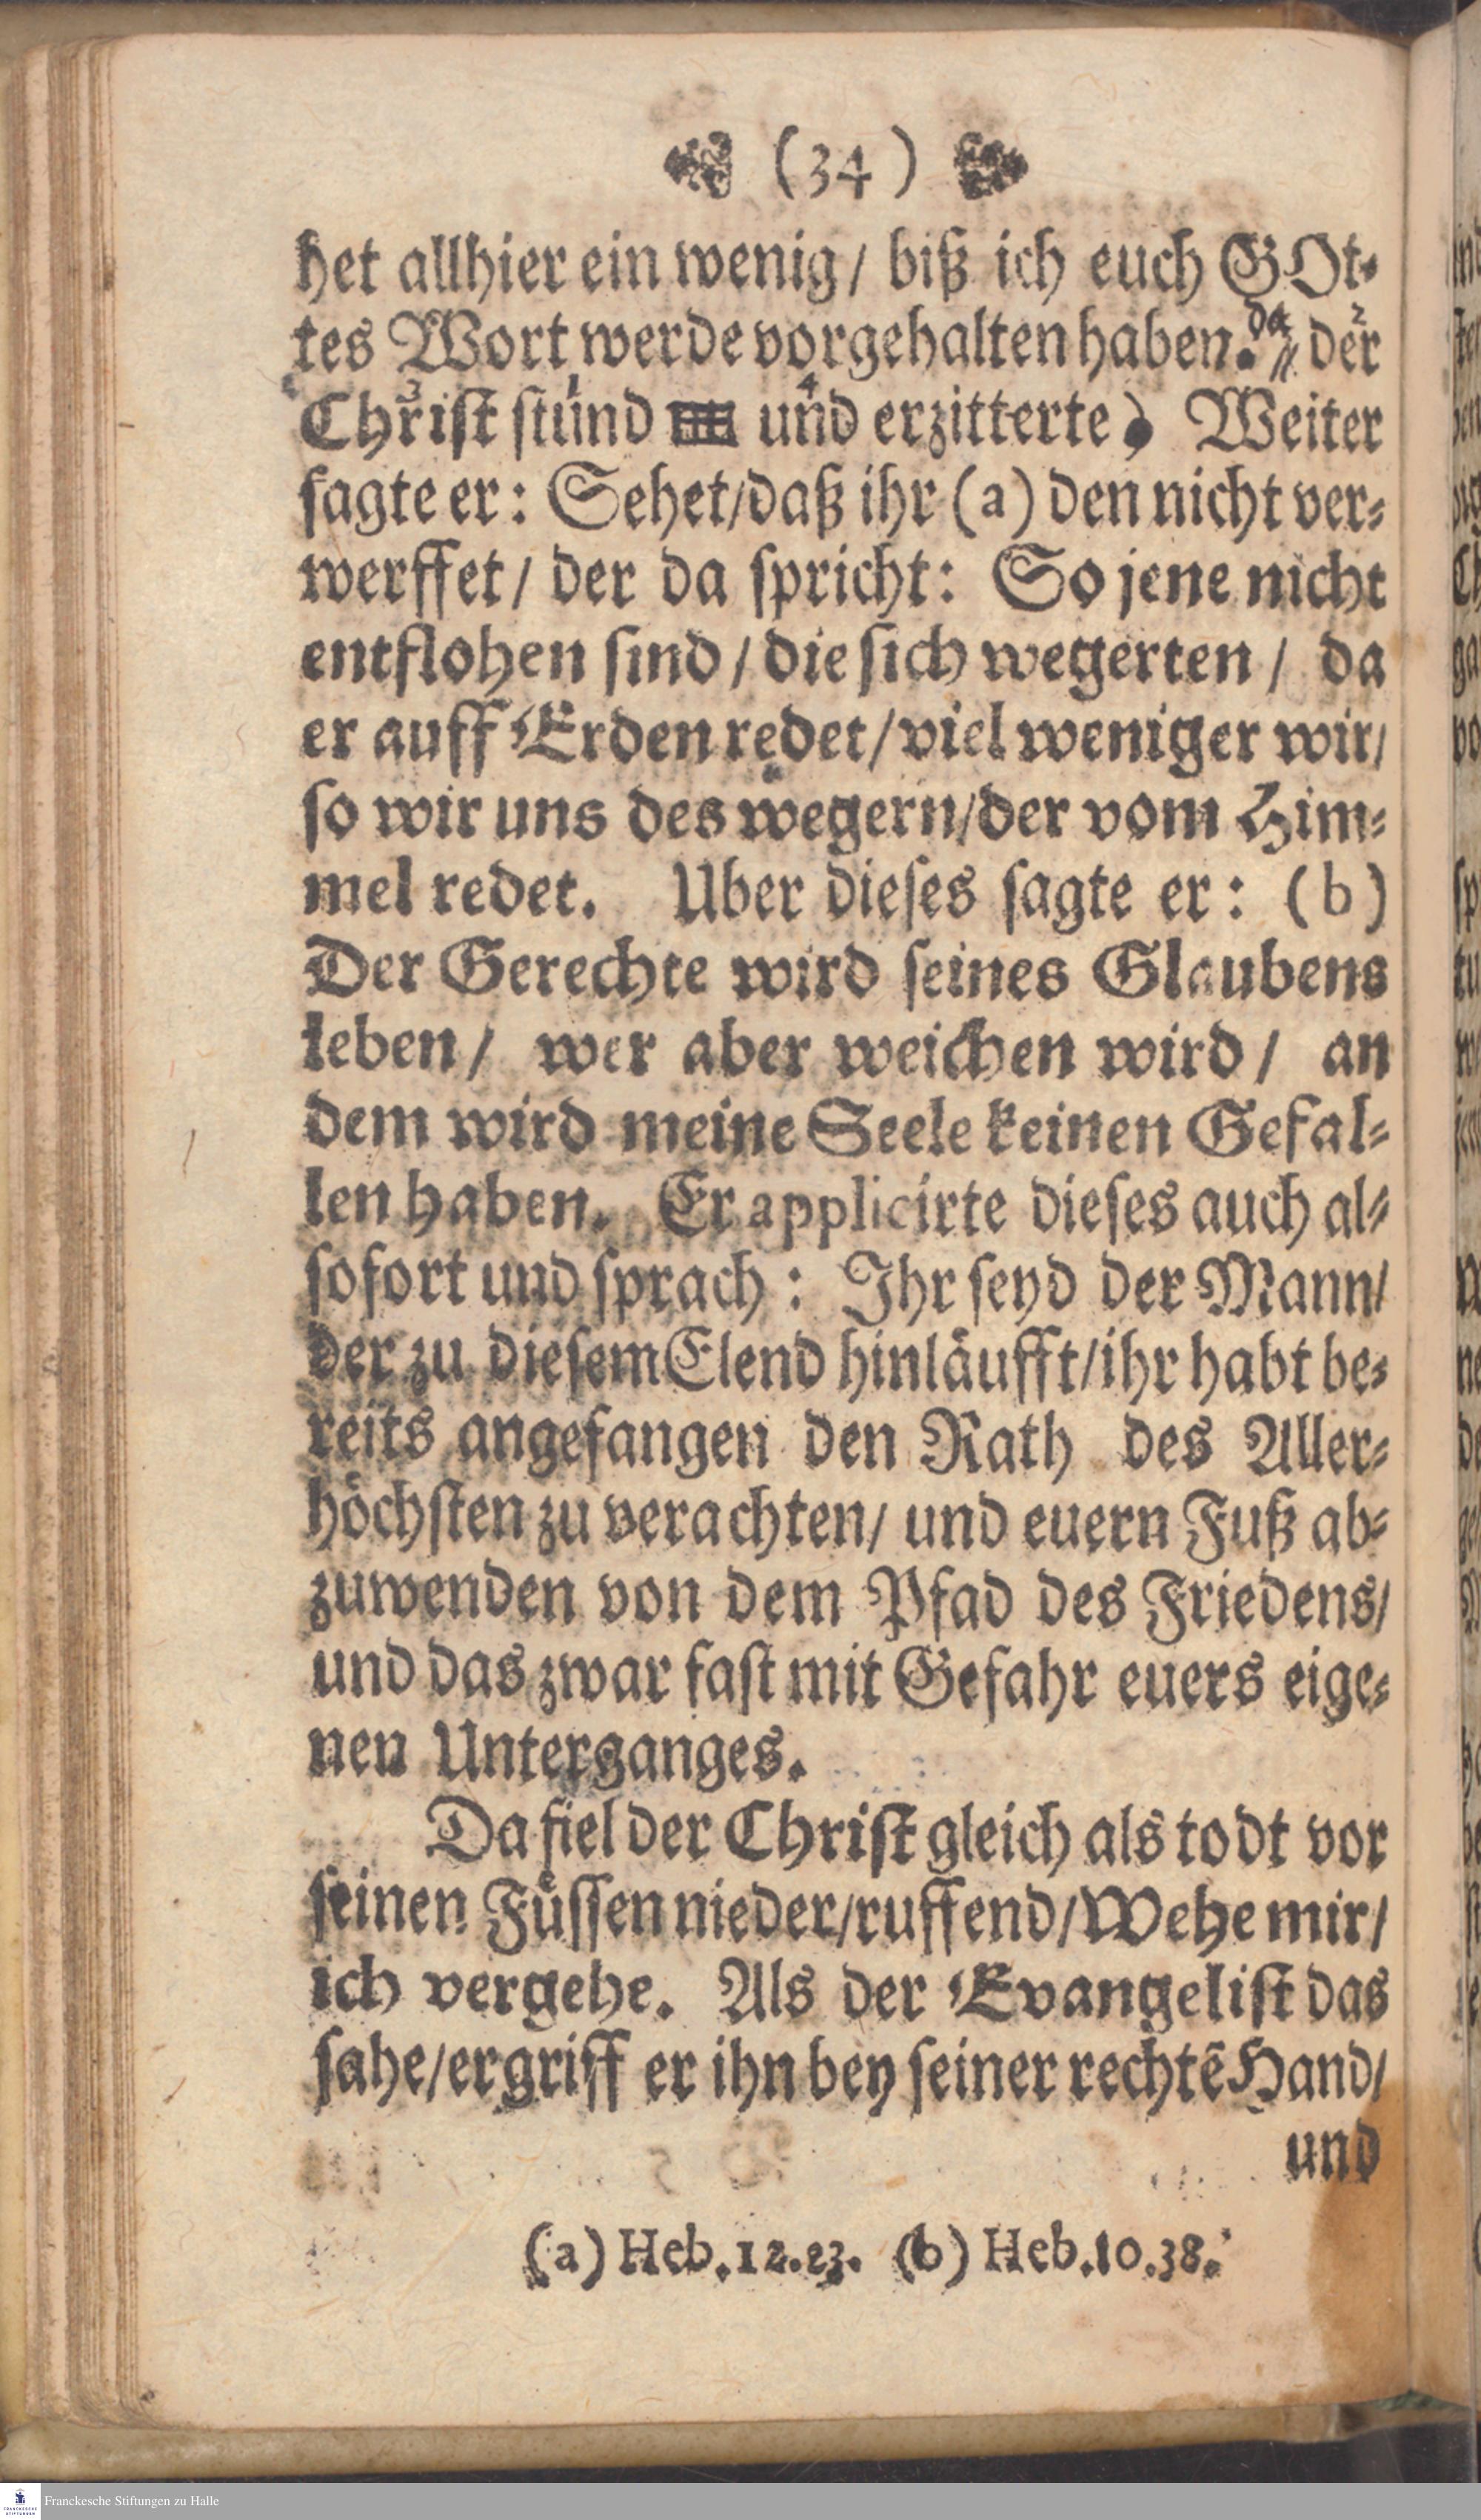 (34)
het allhier ein wenig/ biß ich euch GOt-
tes Wort werde vorgehalten haben. da der
Christ stund und erzitterte) Weiter
sagte er: Sehet/daß ihr (a) den nicht ver-
werffet/ der da spricht: So jene nicht
entflohen sind/ die sich wegerten/ da
er auff Erden redet/viel weniger wir/
so wir uns des wegern/der vom Him-
mel redet. Uber dieses sagte er: (b)
Der Gerechte wird seines Glaubens
leben/ wer aber weichen wird/ an
dem wird meine Seele keinen Gefal-
len haben. Er applicirte dieses auch al-
sofort und sprach: Ihr seyd der Mann/
der zu diesem Elend hinläufft/ihr habt be-
reits angefangen den Rath des Aller-
höchsten zu verachten/ und euern Fuß ab-
zuwenden von dem Pfad des Friedens/
und das zwar fast mit Gefahr euers eige-
nen Unterganges.
Da fiel der Christ gleich als todt vor
seinen Füssen nieder/ruffend/Wehe mir/
ich vergehe. Als der Evangelist das
sahe/ergriff er ihn bey seiner rechtē Hand/
und
(a) Heb.12.23. (b) Heb.10.38.
Franckesche Stiftungen zu Halle